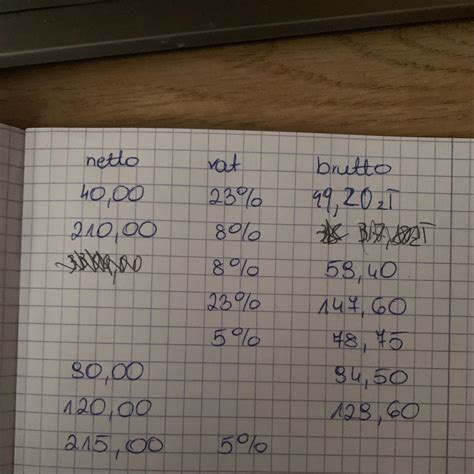 netto vat brutto
40,00 23% 49,20zł
210,00 8%
8% 59,40
23% 147,60
5% 78,75
90,00 94,50
120,00 129,60
215,00 5%